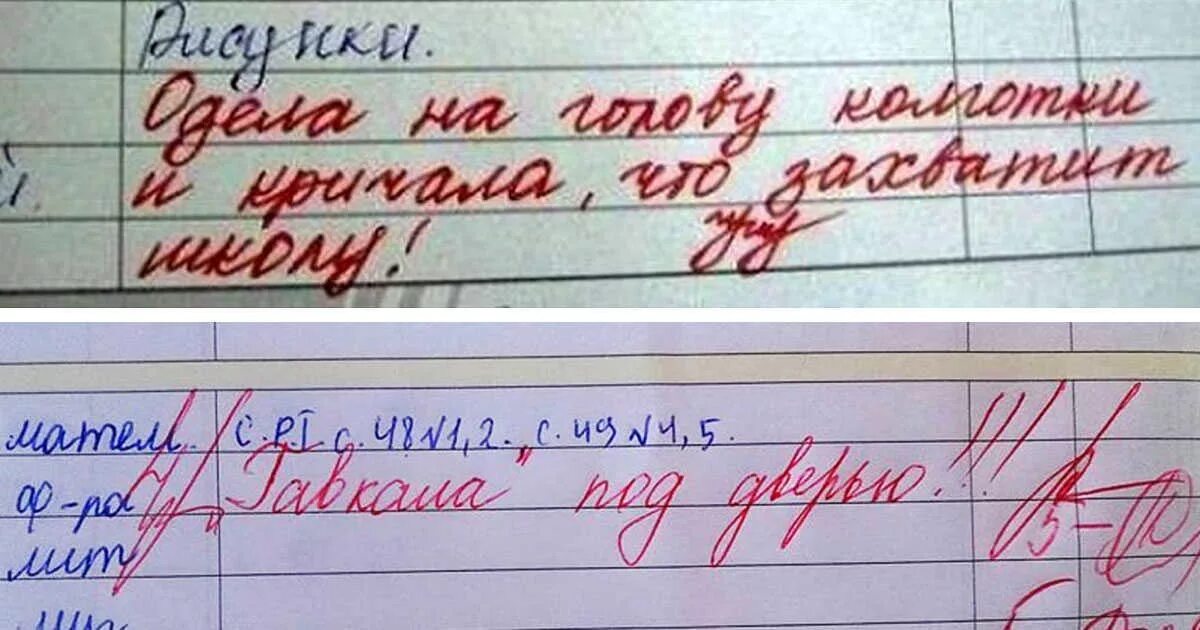 Рисунки.
Одела на голову колготки
и кричала, что захватит
школу!
матем. с. РТ с. 48 №1, 2. с. 49 №4, 5.
"Гавкала" под дверью!!!
ф-ра 5-
лит